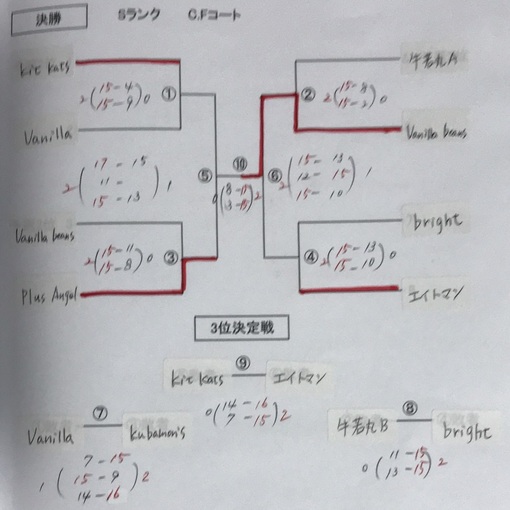 決勝 Sランク C,Fコート
kit kats
牛若丸A
2(15-4 15-9)0 ①
② 2(15-8 15-2)0
Vanilla
Vanilla beans
2(17-15 11- 15-13)1 ⑤
⑩ 0(8-15 13-15)2
⑥ 2(15-13 12-15 15-10)1
Vanilla beans
bright
2(15-11 15-8)0 ③
④ 2(15-13 15-10)0
Plus Angel
エイトマン
3位決定戦
⑨
kit kats エイトマン
0(14-16 7-15)2
⑦
Vanilla kubamon's
1(7-15 15-9 14-16)2
⑧
牛若丸B bright
0(11-15 13-15)2